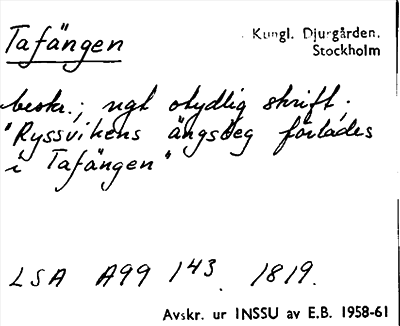 Tafängen
Kungl. Djurgården,
Stockholm
beskr.; ngt otydlig skrift;
"Ryssvikens ängsteg förlades
i Tafängen"
LSA A99 143. 1819.
Avskr. ur INSSU av E.B. 1958-61